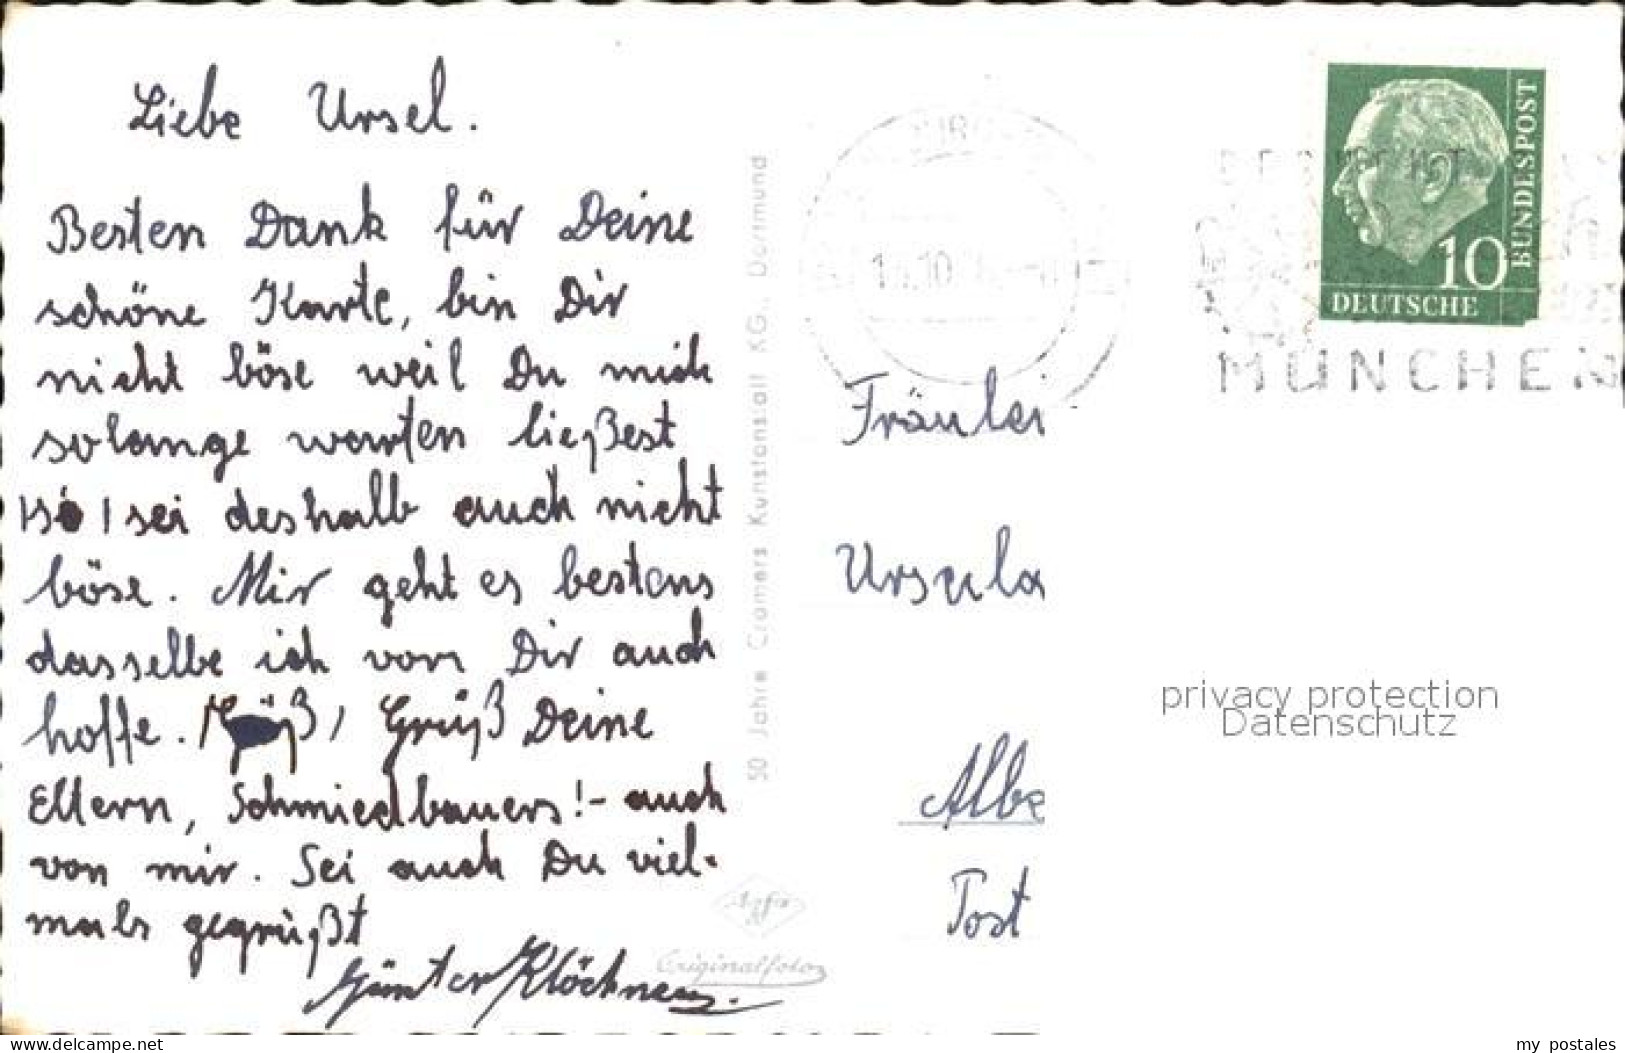 Liebe Ursel.
Besten Dank für Deine
schöne Karte, bin Dir
nicht böse weil Du mich
solange warten ließest
sei deshalb auch nicht
böse. Mir geht es bestens
dasselbe ich von Dir auch
hoffe. Grüß Deine
Eltern, Schmiedbauers!- auch
von mir. Sei auch Du viel-
mals gegrüßt
Günter Klöckner
50 Jahre Cramers Kunstanstalt KG., Dortmund
Agfa
Originalfoto
10
BUNDESPOST
DEUTSCHE
MÜNCHEN
Fräulei
Ursula
Albe
Post
privacy protection
Datenschutz
www.delcampe.net
my_postales